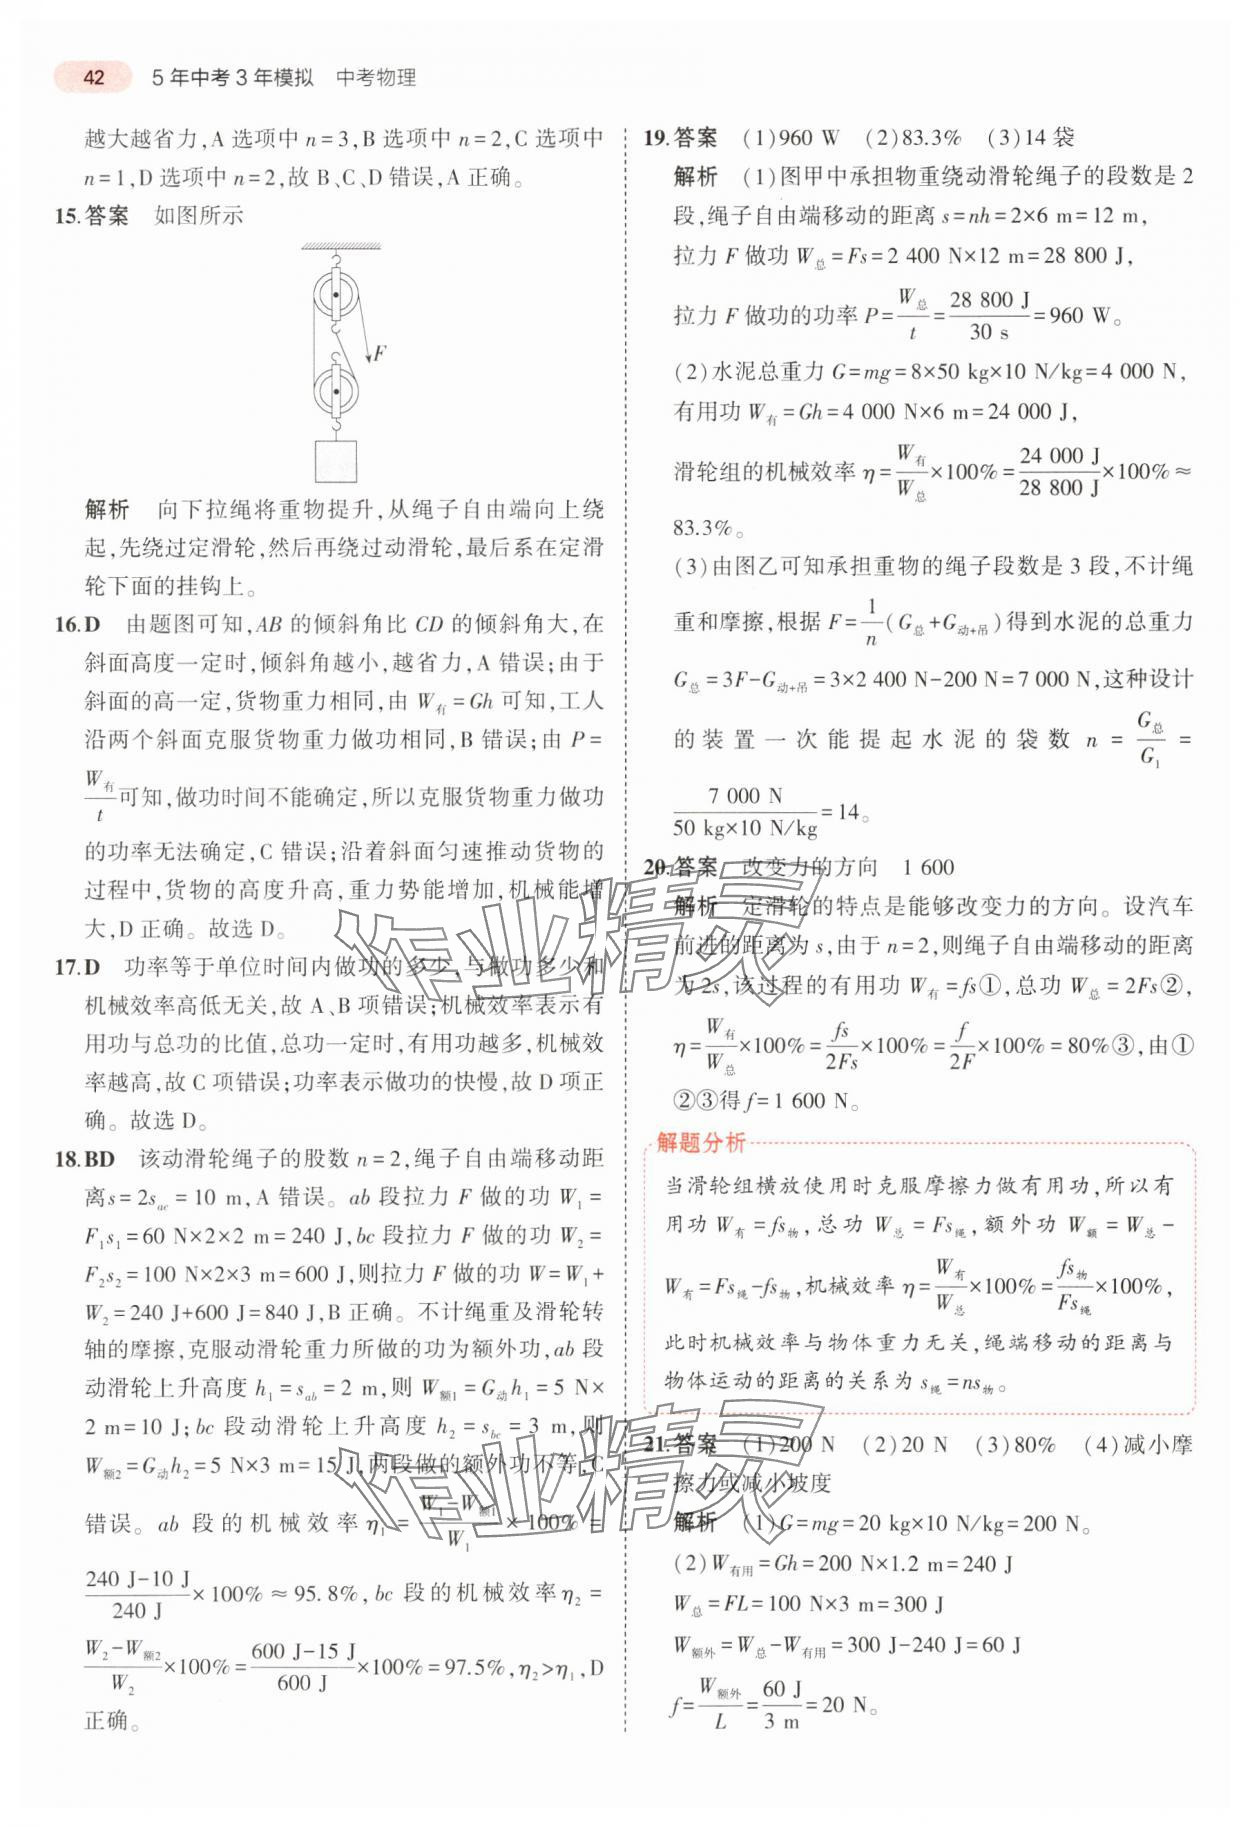 42 5年中考3年模拟 中考物理
越大越省力,A选项中n=3,B选项中n=2,C选项中
n=1,D选项中n=2,故B、C、D错误,A正确。
15.答案 如图所示
F
解析 向下拉绳将重物提升,从绳子自由端向上绕
起,先绕过定滑轮,然后再绕过动滑轮,最后系在定滑
轮下面的挂钩上。
16.D 由题图可知,AB的倾斜角比CD的倾斜角大,在
斜面高度一定时,倾斜角越小,越省力,A错误;由于
斜面的高一定,货物重力相同,由W有=Gh可知,工人
沿两个斜面克服货物重力做功相同,B错误;由P=
W有/t可知,做功时间不能确定,所以克服货物重力做功
的功率无法确定,C错误;沿着斜面匀速推动货物的
过程中,货物的高度升高,重力势能增加,机械能增
大,D正确。故选D。
17.D 功率等于单位时间内做功的多少,与做功多少和
机械效率高低无关,故A、B项错误;机械效率表示有
用功与总功的比值,总功一定时,有用功越多,机械效
率越高,故C项错误;功率表示做功的快慢,故D项正
确。故选D。
18.BD 该动滑轮绳子的股数n=2,绳子自由端移动距
离s=2s_ac=10 m,A错误。ab段拉力F做的功W₁=
F₁s₁=60 N×2×2 m=240 J,bc段拉力F做的功W₂=
F₂s₂=100 N×2×3 m=600 J,则拉力F做的功W=W₁+
W₂=240 J+600 J=840 J,B正确。不计绳重及滑轮转
轴的摩擦,克服动滑轮重力所做的功为额外功,ab段
动滑轮上升高度h₁=s_ab=2 m,则W额1=G动h₁=5 N×
2 m=10 J;bc段动滑轮上升高度h₂=s_bc=3 m,则
W额2=G动h₂=5 N×3 m=15 J,两段做的额外功不等,C
错误。ab段的机械效率η₁=(W₁-W额1)/W₁×100%=
(240 J-10 J)/240 J×100%≈95.8%,bc段的机械效率η₂=
(W₂-W额2)/W₂×100%=(600 J-15 J)/600 J×100%=97.5%,η₂>η₁,D
正确。
19.答案 (1)960 W (2)83.3% (3)14袋
解析 (1)图甲中承担物重绕动滑轮绳子的段数是2
段,绳子自由端移动的距离s=nh=2×6 m=12 m,
拉力F做功W总=Fs=2 400 N×12 m=28 800 J,
拉力F做功的功率P=W总/t=28 800 J/30 s=960 W。
(2)水泥总重力G=mg=8×50 kg×10 N/kg=4 000 N,
有用功W有=Gh=4 000 N×6 m=24 000 J,
滑轮组的机械效率η=W有/W总×100%=24 000 J/28 800 J×100%≈
83.3%。
(3)由图乙可知承担重物的绳子段数是3段,不计绳
重和摩擦,根据F=1/n(G总+G动+吊)得到水泥的总重力
G总=3F-G动+吊=3×2 400 N-200 N=7 000 N,这种设计
的装置一次能提起水泥的袋数n=G总/G₁=
7 000 N/(50 kg×10 N/kg)=14。
20.答案 改变力的方向 1 600
解析 定滑轮的特点是能够改变力的方向。设汽车
前进的距离为s,由于n=2,则绳子自由端移动的距离
为2s,该过程的有用功W有=fs①,总功W总=2Fs②,
η=W有/W总×100%=fs/2Fs×100%=f/2F×100%=80%③,由①
②③得f=1 600 N。
解题分析
当滑轮组横放使用时克服摩擦力做有用功,所以有
用功W有=fs物,总功W总=Fs绳,额外功W额=W总-
W有=Fs绳-fs物,机械效率η=W有/W总×100%=fs物/Fs绳×100%,
此时机械效率与物体重力无关,绳端移动的距离与
物体运动的距离的关系为s绳=ns物。
21.答案 (1)200 N (2)20 N (3)80% (4)减小摩
擦力或减小坡度
解析 (1)G=mg=20 kg×10 N/kg=200 N。
(2)W有用=Gh=200 N×1.2 m=240 J
W总=FL=100 N×3 m=300 J
W额外=W总-W有用=300 J-240 J=60 J
f=W额外/L=60 J/3 m=20 N。
作业精灵
作业精灵